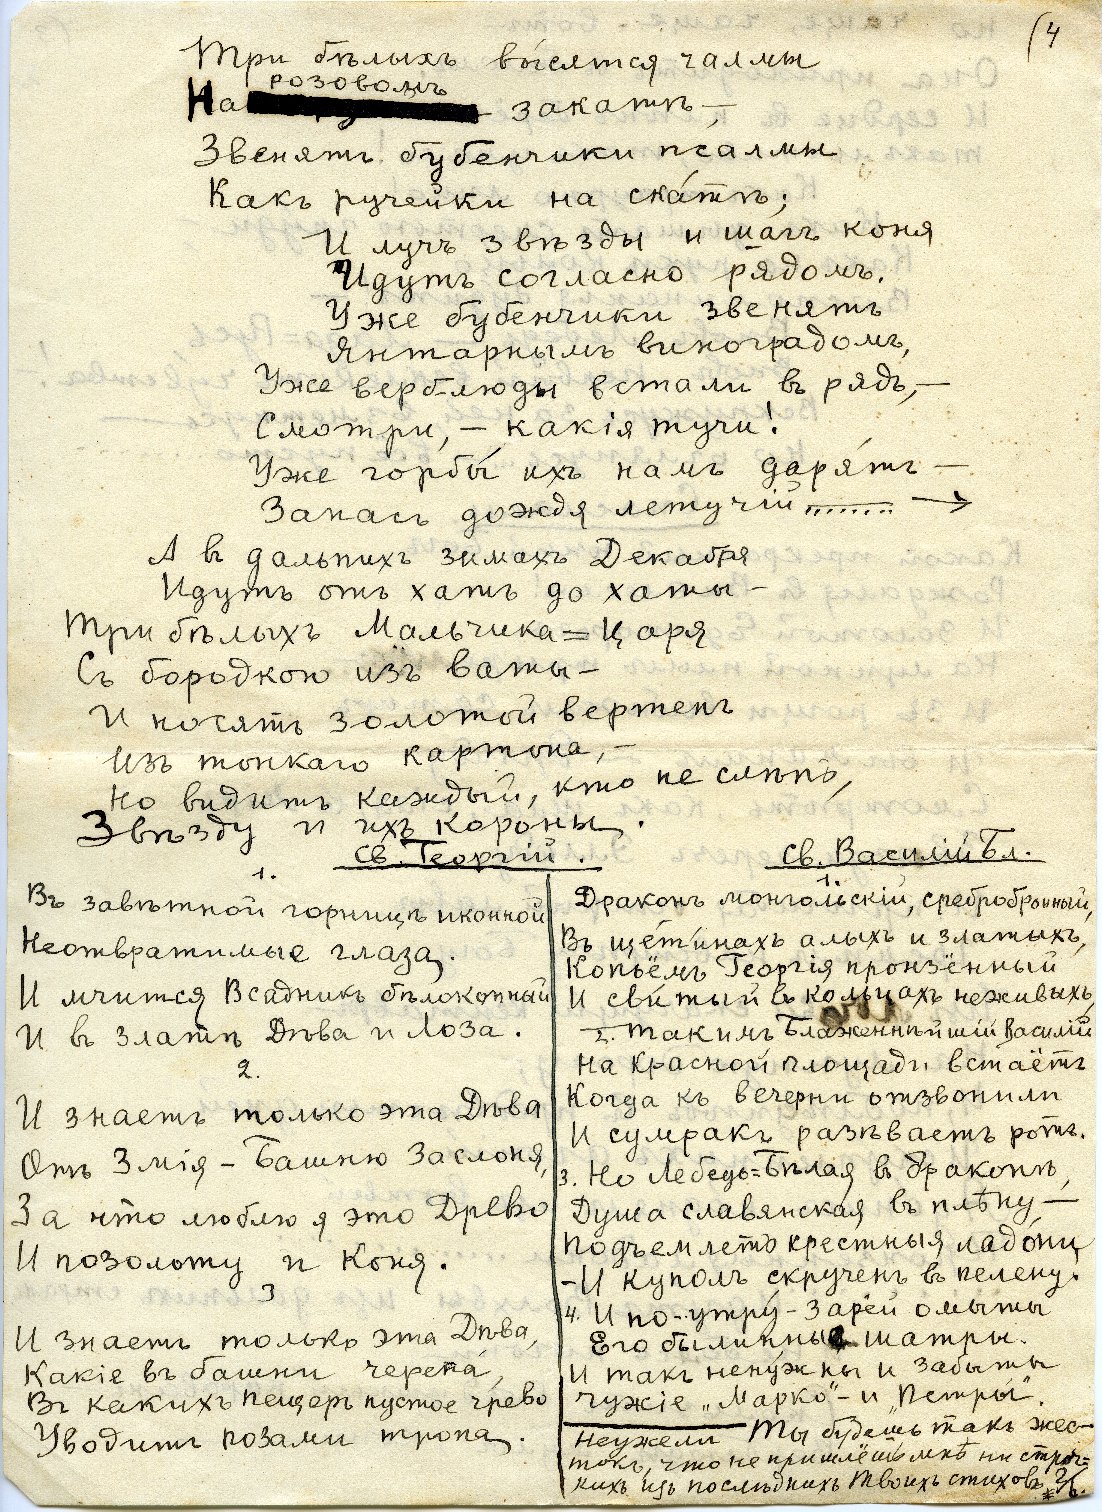 (4
Три бѣлыхъ высятся чалмы
На розовомъ закатѣ, —
Звенятъ бубенчики псалмы
Какъ ручейки на ска́тѣ;
И лучъ звѣзды и шагъ коня
Идутъ согласно рядомъ.
Уже бубенчики звенятъ
Янтарнымъ виноградомъ,
Уже верблюды встали въ рядъ, —
Смотри, — какія тучи!
Уже горбы́ ихъ намъ даря́тъ —
Запасъ дождя летучій........ →
А въ дальнихъ зимахъ Декабря
Идутъ отъ хатъ до хаты —
Три бѣлыхъ Мальчика = Царя
Съ бородкою изъ ваты —
И носятъ золотой вертепъ
Изъ тонкаго картона, —
Но видитъ каждый, кто не слѣпъ,
Звѣзду и ихъ короны.
Св. Георгій.
1.
Въ завѣтной горницѣ иконной
Неотвратимые глаза.
И мчится Всадникъ бѣлоконный
И въ златѣ Дѣва и Лоза.
2.
И знаетъ только эта Дѣва
Отъ Змія – Башню Заслоня,
За что люблю я это Древо
И позолоту и Коня.
3
И знаетъ только эта Дѣва,
Какіе въ башни черепа́,
Въ какихъ пещеръ пустое чрево
Уводитъ розами тропа.
Св. Василій Бл.
1.
Драконъ монгольскій, сребробронный,
Въ щетинахъ алыхъ и златыхъ,
Копьёмъ Георгія пронзённый
И сви́тый въ кольцахъ неживыхъ
2. — Такимъ Блаженнѣйшій Василій
На Красной площади встаётъ
Когда къ вечерни отзвонили
И сумракъ разѣваетъ ротъ.
3. Но Лебедь=Бѣлая въ драконѣ,
Душа славянская въ плѣну —
Подъемлетъ крестныя ладо́ни
– И куполъ скрученъ въ пелену.
4. И по-утру́ – зарёй омыты
Его былинные шатры.
И такъ ненужны и забыты
Чужіе „Марко" – и „Петры".
Неужели Ты будешь такъ жес-
токъ, что не пришлёшь мнѣ ни строч=
кихъ изъ послѣднихъ Твоихъ стиховъ